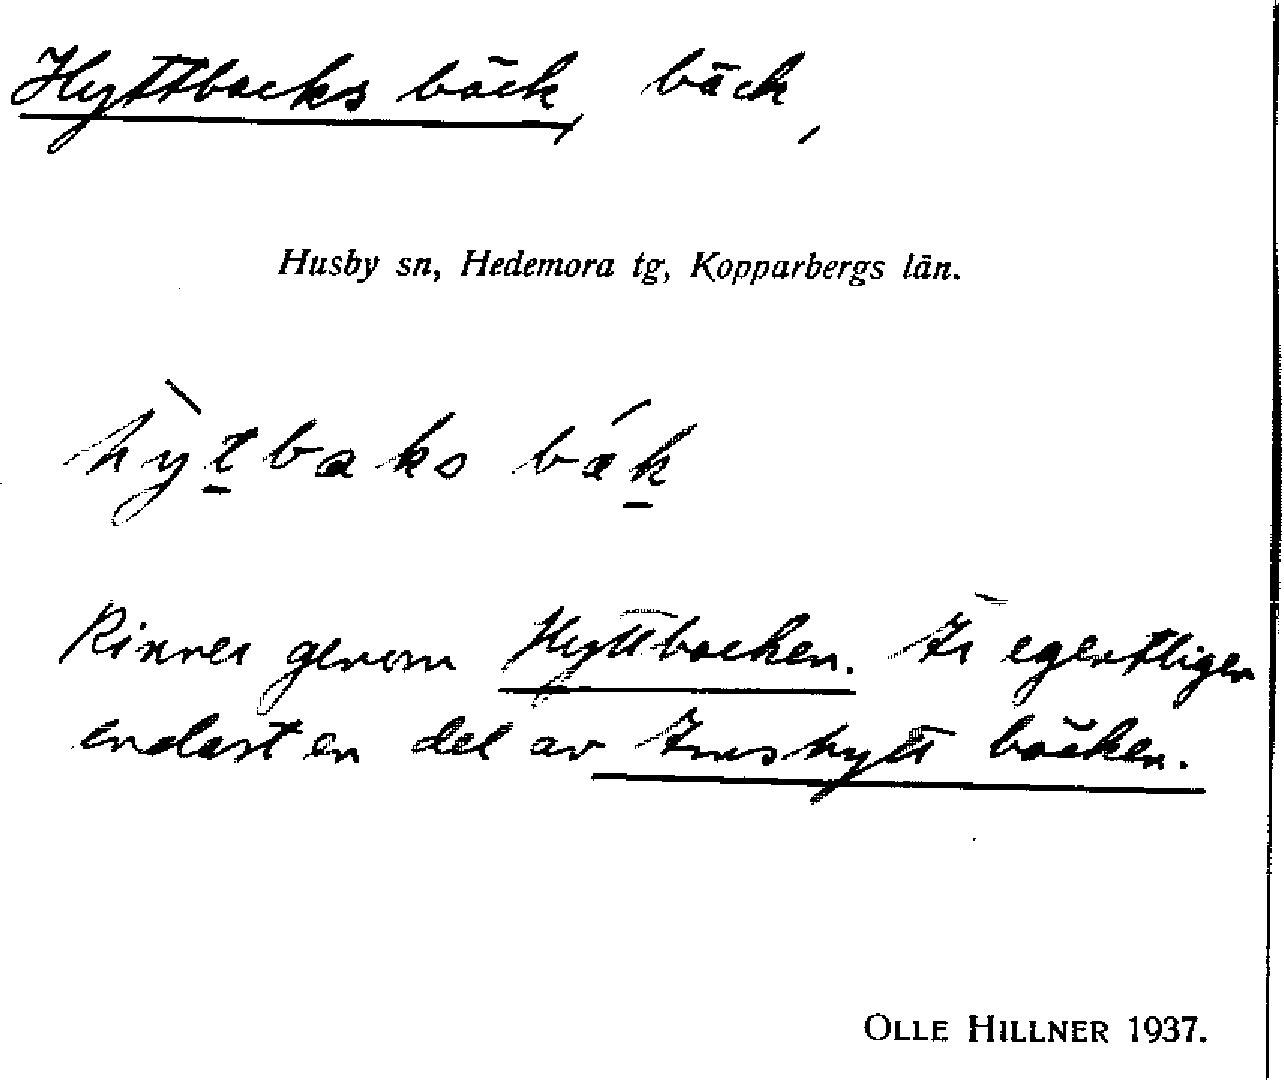 Hyttbacks bäck, bäck,
Husby sn, Hedemora tg, Kopparbergs län.
hy̠tbaks bäk̠
Rinner genom Hyttbacken. Är egentligen
endast en del av Immshytt bäcken.
OLLE HILLNER 1937.